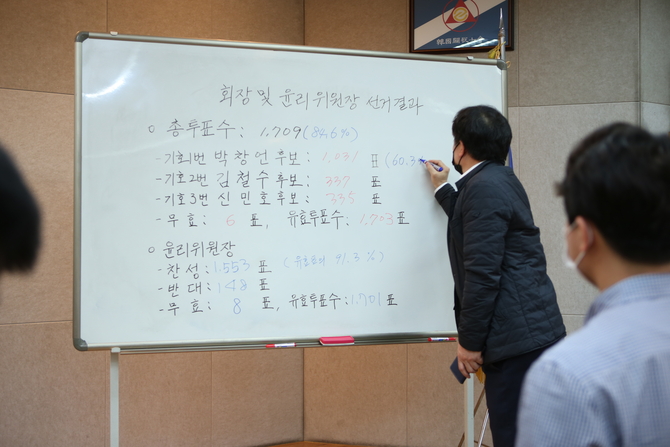 회장 및 윤리위원장 선거결과
○ 총투표수 : 1,709 (84.6%)
- 기호1번 박창언후보 : 1,031 표 (60.3%
- 기호2번 김철수후보 : 337 표
- 기호3번 신민호후보 : 335 표
- 무효 : 6 표, 유효투표수 : 1,703표
○ 윤리위원장
- 찬성 : 1,553 표 (유효표의 91.3 %)
- 반대 : 148 표
- 무효 : 8 표, 유효투표수 : 1,701 표